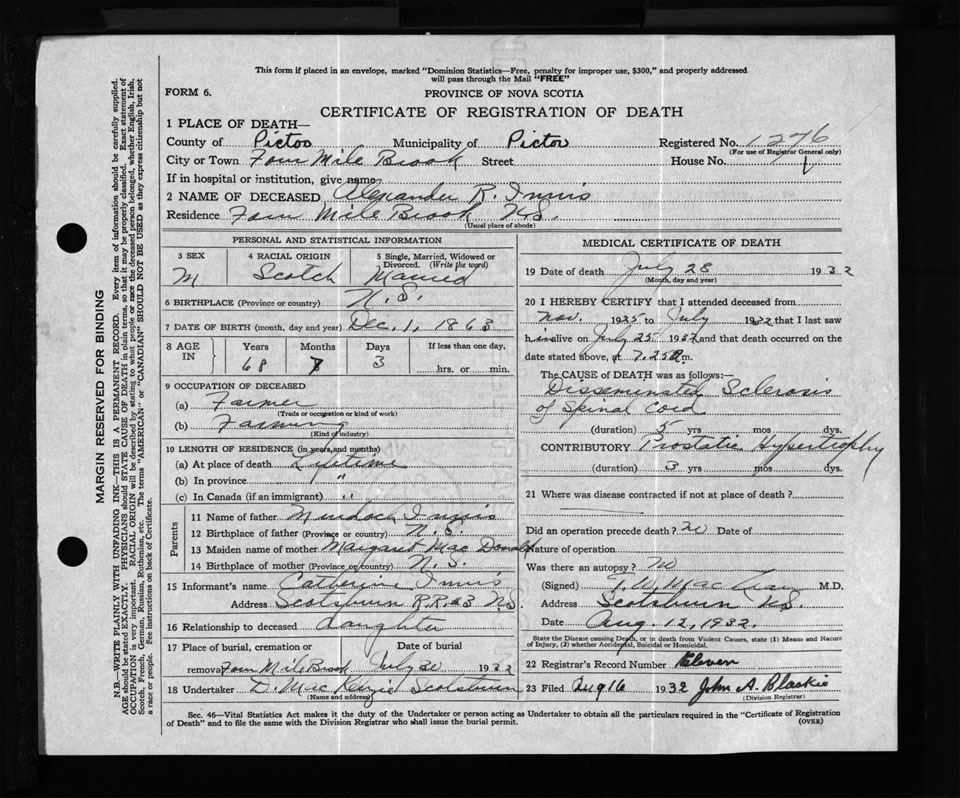 This form if placed in an envelope, marked "Dominion Statistics—Free, penalty for improper use, $300," and properly addressed
will pass through the Mail "FREE"
FORM 6.
PROVINCE OF NOVA SCOTIA
CERTIFICATE OF REGISTRATION OF DEATH
1 PLACE OF DEATH—
County of Pictou Municipality of Pictou Registered No. 1276
(For use of Registrar General only)
City or Town Four Mile Brook Street House No.
If in hospital or institution, give name
2 NAME OF DECEASED Alexander R. Innis
Residence Four Mile Brook N.S.
(Usual place of abode)
PERSONAL AND STATISTICAL INFORMATION
3 SEX M
4 RACIAL ORIGIN Scotch
5 Single, Married, Widowed or Divorced. (Write the word) Married
6 BIRTHPLACE (Province or country) N.S.
7 DATE OF BIRTH (month, day and year) Dec. 1, 1863
8 AGE IN Years Months Days If less than one day.
68 3 hrs. or min.
9 OCCUPATION OF DECEASED
(a) Farmer
(Trade or occupation or kind of work)
(b) Farming
(Kind of industry)
10 LENGTH OF RESIDENCE (in years and months)
(a) At place of death Lifetime
(b) In province "
(c) In Canada (if an immigrant) "
Parents
11 Name of father Murdoch Innis
12 Birthplace of father (Province or country) N.S.
13 Maiden name of mother Margaret MacDonald
14 Birthplace of mother (Province or country) N.S.
15 Informant's name Catherine Innis
Address Scotsburn R.R.#3 N.S.
16 Relationship to deceased daughter
17 Place of burial, cremation or Date of burial
removal Four Mile Brook July 30 1932
18 Undertaker D. MacKenzie Scotsburn
(Name and address)
MEDICAL CERTIFICATE OF DEATH
19 Date of death July 28 1932
(Month, day and year)
20 I HEREBY CERTIFY that I attended deceased from
Nov. 1925 to July 1932 that I last saw
h im alive on July 25 1932 and that death occurred on the
date stated above, at 7.25 m.
The CAUSE OF DEATH was as follows:—
Disseminated Sclerosis
of Spinal Cord
(duration) 5 yrs mos dys.
CONTRIBUTORY Prostatic Hypertrophy
(duration) 3 yrs mos dys.
21 Where was disease contracted if not at place of death?
Did an operation precede death? No Date of
Nature of operation
Was there an autopsy? No
(Signed) M.D.
Address Scotsburn N.S.
Date Aug. 12, 1932.
State the Disease causing Death, or in death from Violent Causes, state (1) Means and Nature
of Injury, (2) whether Accidental, Suicidal or Homicidal.
22 Registrar's Record Number Eleven
23 Filed Aug 16 1932 John A. Blackie
(Division Registrar)
Sec. 46—Vital Statistics Act makes it the duty of the Undertaker or person acting as Undertaker to obtain all the particulars required in the "Certificate of Registration
of Death" and to file the same with the Division Registrar who shall issue the burial permit.
(OVER)
MARGIN RESERVED FOR BINDING
N.B.—WRITE PLAINLY WITH UNFADING INK—THIS IS A PERMANENT RECORD. Every item of information should be carefully supplied.
AGE should be stated EXACTLY. PHYSICIANS should STATE CAUSE OF DEATH in plain terms, so that it may be properly classified. Exact statement of
OCCUPATION is very important. RACIAL ORIGIN will be described by stating to what people or race the deceased person belonged, whether English, Irish,
Scotch, French, German, Russian, Ruthenian, etc. The terms "AMERICAN" or "CANADIAN" SHOULD NOT BE USED as they express citizenship but not
a race or people. See instructions on back of Certificate.